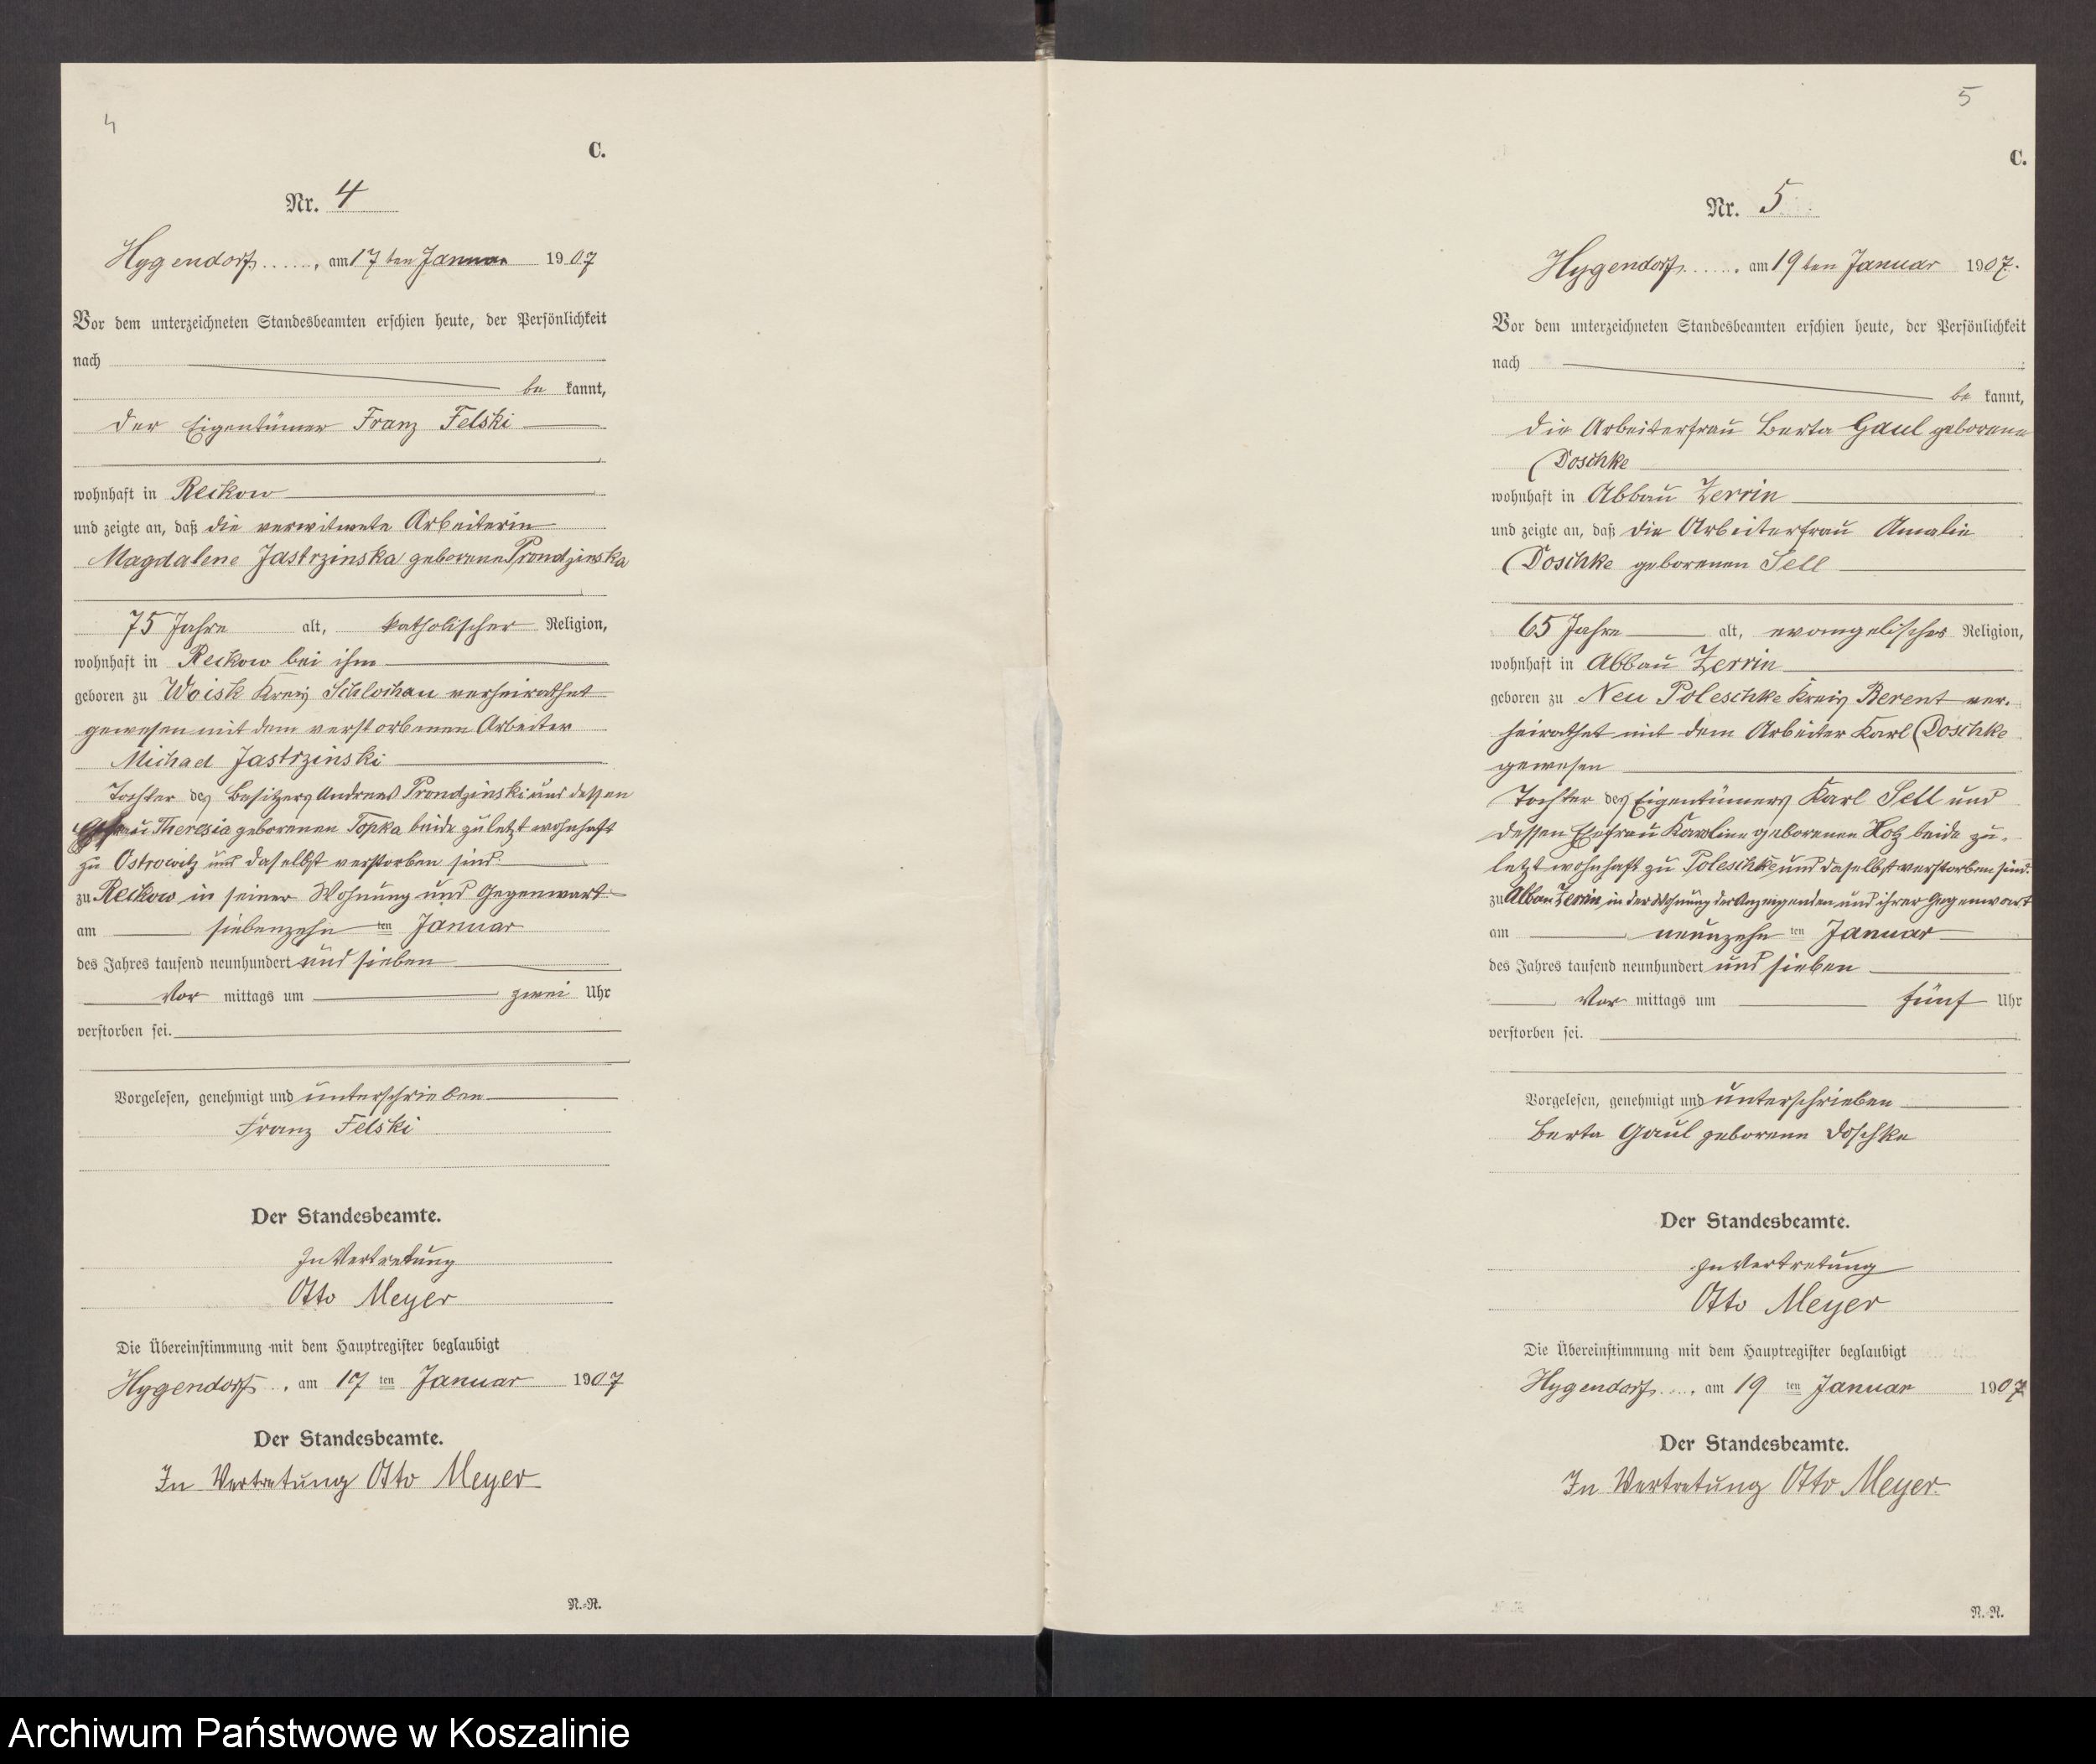 4
C.
Nr. 4
Hygendorf, am 17ten Januar 1907
Vor dem unterzeichneten Standesbeamten erschien heute, der Persönlichkeit
nach
be kannt,
der Eigentümer Franz Felski
wohnhaft in Reckow
und zeigte an, daß die verwitwete Arbeiterin
Magdalene Jastrzinska geborene Prondzinska
75 Jahre alt, katholischer Religion,
wohnhaft in Reckow bei ihm
geboren zu Woisk Kreis Schlochau verheirathet
gewesen mit dem verstorbenen Arbeiter
Michael Jastrzinski
Tochter des Besitzers Andreas Prondzinski und dessen
Ehefrau Theresia geborenen Topka beide zuletzt wohnhaft
zu Ostrowitz und daselbst verstorben sind.
zu Reckow in seiner Wohnung und Gegenwart
am siebenzehn ten Januar
des Jahres tausend neunhundert und sieben
Vor mittags um zwei Uhr
verstorben sei.
Vorgelesen, genehmigt und unterschrieben
Franz Felski
Der Standesbeamte.
In Vertretung
Otto Meyer
Die Übereinstimmung mit dem Hauptregister beglaubigt
Hygendorf, am 17 ten Januar 1907
Der Standesbeamte.
In Vertretung Otto Meyer
N.-R.
5
C.
Nr. 5
Hygendorf, am 19ten Januar 1907.
Vor dem unterzeichneten Standesbeamten erschien heute, der Persönlichkeit
nach
be kannt,
die Arbeiterfrau Berta Gaul geborene
Doschke
wohnhaft in Abbau Zerrin
und zeigte an, daß die Arbeiterfrau Amalie
Doschke geborenen Sell
65 Jahre alt, evangelischer Religion,
wohnhaft in Abbau Zerrin
geboren zu Neu Poleschke Kreis Berent ver-
heirathet mit dem Arbeiter Karl Doschke
gewesen
Tochter des Eigentümers Karl Sell und
dessen Ehefrau Karoline geborenen Kotz beide zu-
letzt wohnhaft zu Poleschke und daselbst verstorben sind.
zu Abbau Zerrin in der Wohnung der Anzeigenden und ihrer Gegenwart
am neunzehn ten Januar
des Jahres tausend neunhundert und sieben
Vor mittags um fünf Uhr
verstorben sei.
Vorgelesen, genehmigt und unterschrieben
Berta Gaul geborene Doschke
Der Standesbeamte.
In Vertretung
Otto Meyer
Die Übereinstimmung mit dem Hauptregister beglaubigt
Hygendorf, am 19 ten Januar 1907
Der Standesbeamte.
In Vertretung Otto Meyer.
N.-R.
Archiwum Państwowe w Koszalinie